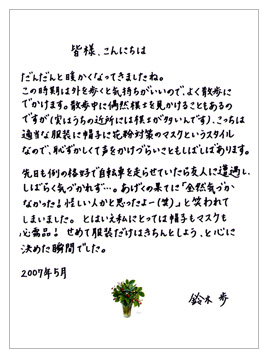 皆様、こんにちは
だんだんと暖かくなってきましたね。
この時期は外を歩くと気持ちがいいので、よく散歩に
でかけます。散歩中に偶然棋士を見かけることもあるの
ですが(実はうちの近所には棋士が多いんです)、こっちは
適当な服装に帽子に花粉対策のマスクというスタイル
なので、恥ずかしくて声をかけづらいこともしばしばあります。
先日も例の格好で自転車を走らせていたら友人に遭遇し、
しばらく気づかれず…。あげくの果てに「全然気づか
なかった!怪しい人かと思ったよー(笑)」と笑われて
しまいました。とはいえ私にとっては帽子もマスクも
必需品!せめて服装だけはきちんとしよう、と心に
決めた瞬間でした。
2007年5月
鈴木歩